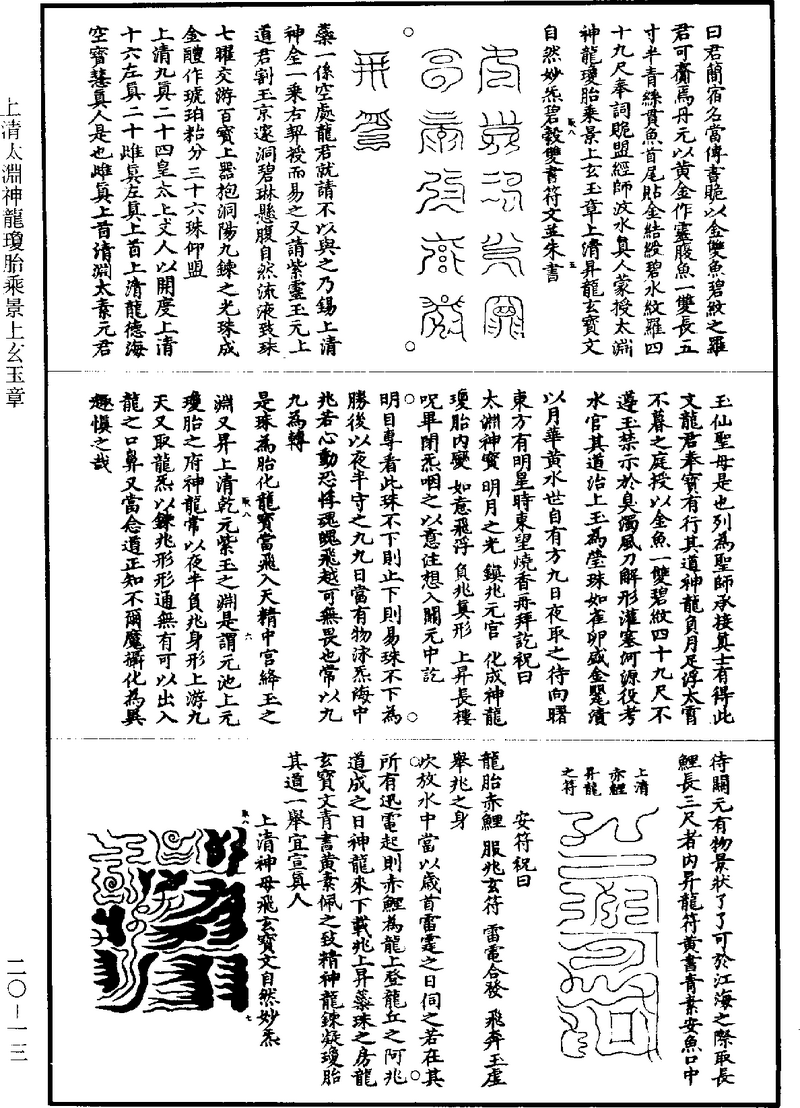 上清太淵神龍瓊胎乘景上玄玉章
二〇—一三
曰君簡宿名當傳書脆以金雙魚碧紋之羅
君可齎焉丹元以黃金作靈腹魚一雙長五
寸半青絲貫魚首尾貼金結縀碧水紋羅四
十九尺奉詞貺盟經師汶水真人蒙授太淵
神龍瓊胎乘景上玄玉章上清昇龍玄寶文
自然妙炁碧轂雙書符文並朱書
蘂一係空處龍君就請不以與之乃錫上清
神全一乘右契授而易之又請紫靈玉元上
道君劉玉京邃洞碧琳懸腹自然流液致珠
七曜交游百寶上器抱洞陽九鍊之光珠成
金醴作琥珀粭分三十六珠仰盟
上清九真二十四皇太上丈人以開度上清
十六左真二十雌真左真上首上清龍德海
空寶慧真人是也雌真上首清淵太素元君
玉仙聖母是也列為聖師承接真士有得此
文龍君奉寶有行其道神龍負月足浮太霄
不暮之庭授以金魚一雙碧紋四十九尺不
遵玉禁示於臭濁風刀解形灌塞河源役考
水官其道治上玉為瑩珠如雀卵盛金甖漬
以月華黃水世自有方九日夜取之待向曙
東方有明皇時東望燒香再拜訖祝曰
太淵神寶 明月之光 鎮兆元宮 化成神龍
瓊胎內變 如意飛浮 負兆真形 上昇長樓
呪畢閉炁咽之以意注想入關元中訖
明目尊者此珠不下則止下則易珠不下為
勝後以夜半守之九九日當有物泳炁海中
兆若心動恐悸魂魄飛越可無畏也常以九
九為轉
是珠為胎化龍寶當飛入天精中宮絳玉之
淵又昇上清乾元紫玉之淵是謂元池上元
瓊胎之府神龍常以夜半負兆身形上游九
天又取龍炁以鍊兆形形通無有可以出入
龍之口鼻又當念道正知不爾魔攝化為異
趣慎之哉
待關元有物景狀了了可於江海之際取長
鯉長三尺者內昇龍符黃書青素安魚口中
上清
赤鯉
昇龍
之符
安符祝曰
龍胎赤鯉 服兆玄符 雷電合發 飛奔玉虛
舉兆之身
吹放水中當以歲首雷霆之日伺之若在其
所有迅電起則赤鯉為龍上登龍丘之阿兆
道成之日神龍來下載兆上昇蘂珠之房龍
玄寶文青書黃素佩之致精神龍鍊凝瓊胎
其道一舉宜宣真人
上清神母飛玄寶文自然妙炁